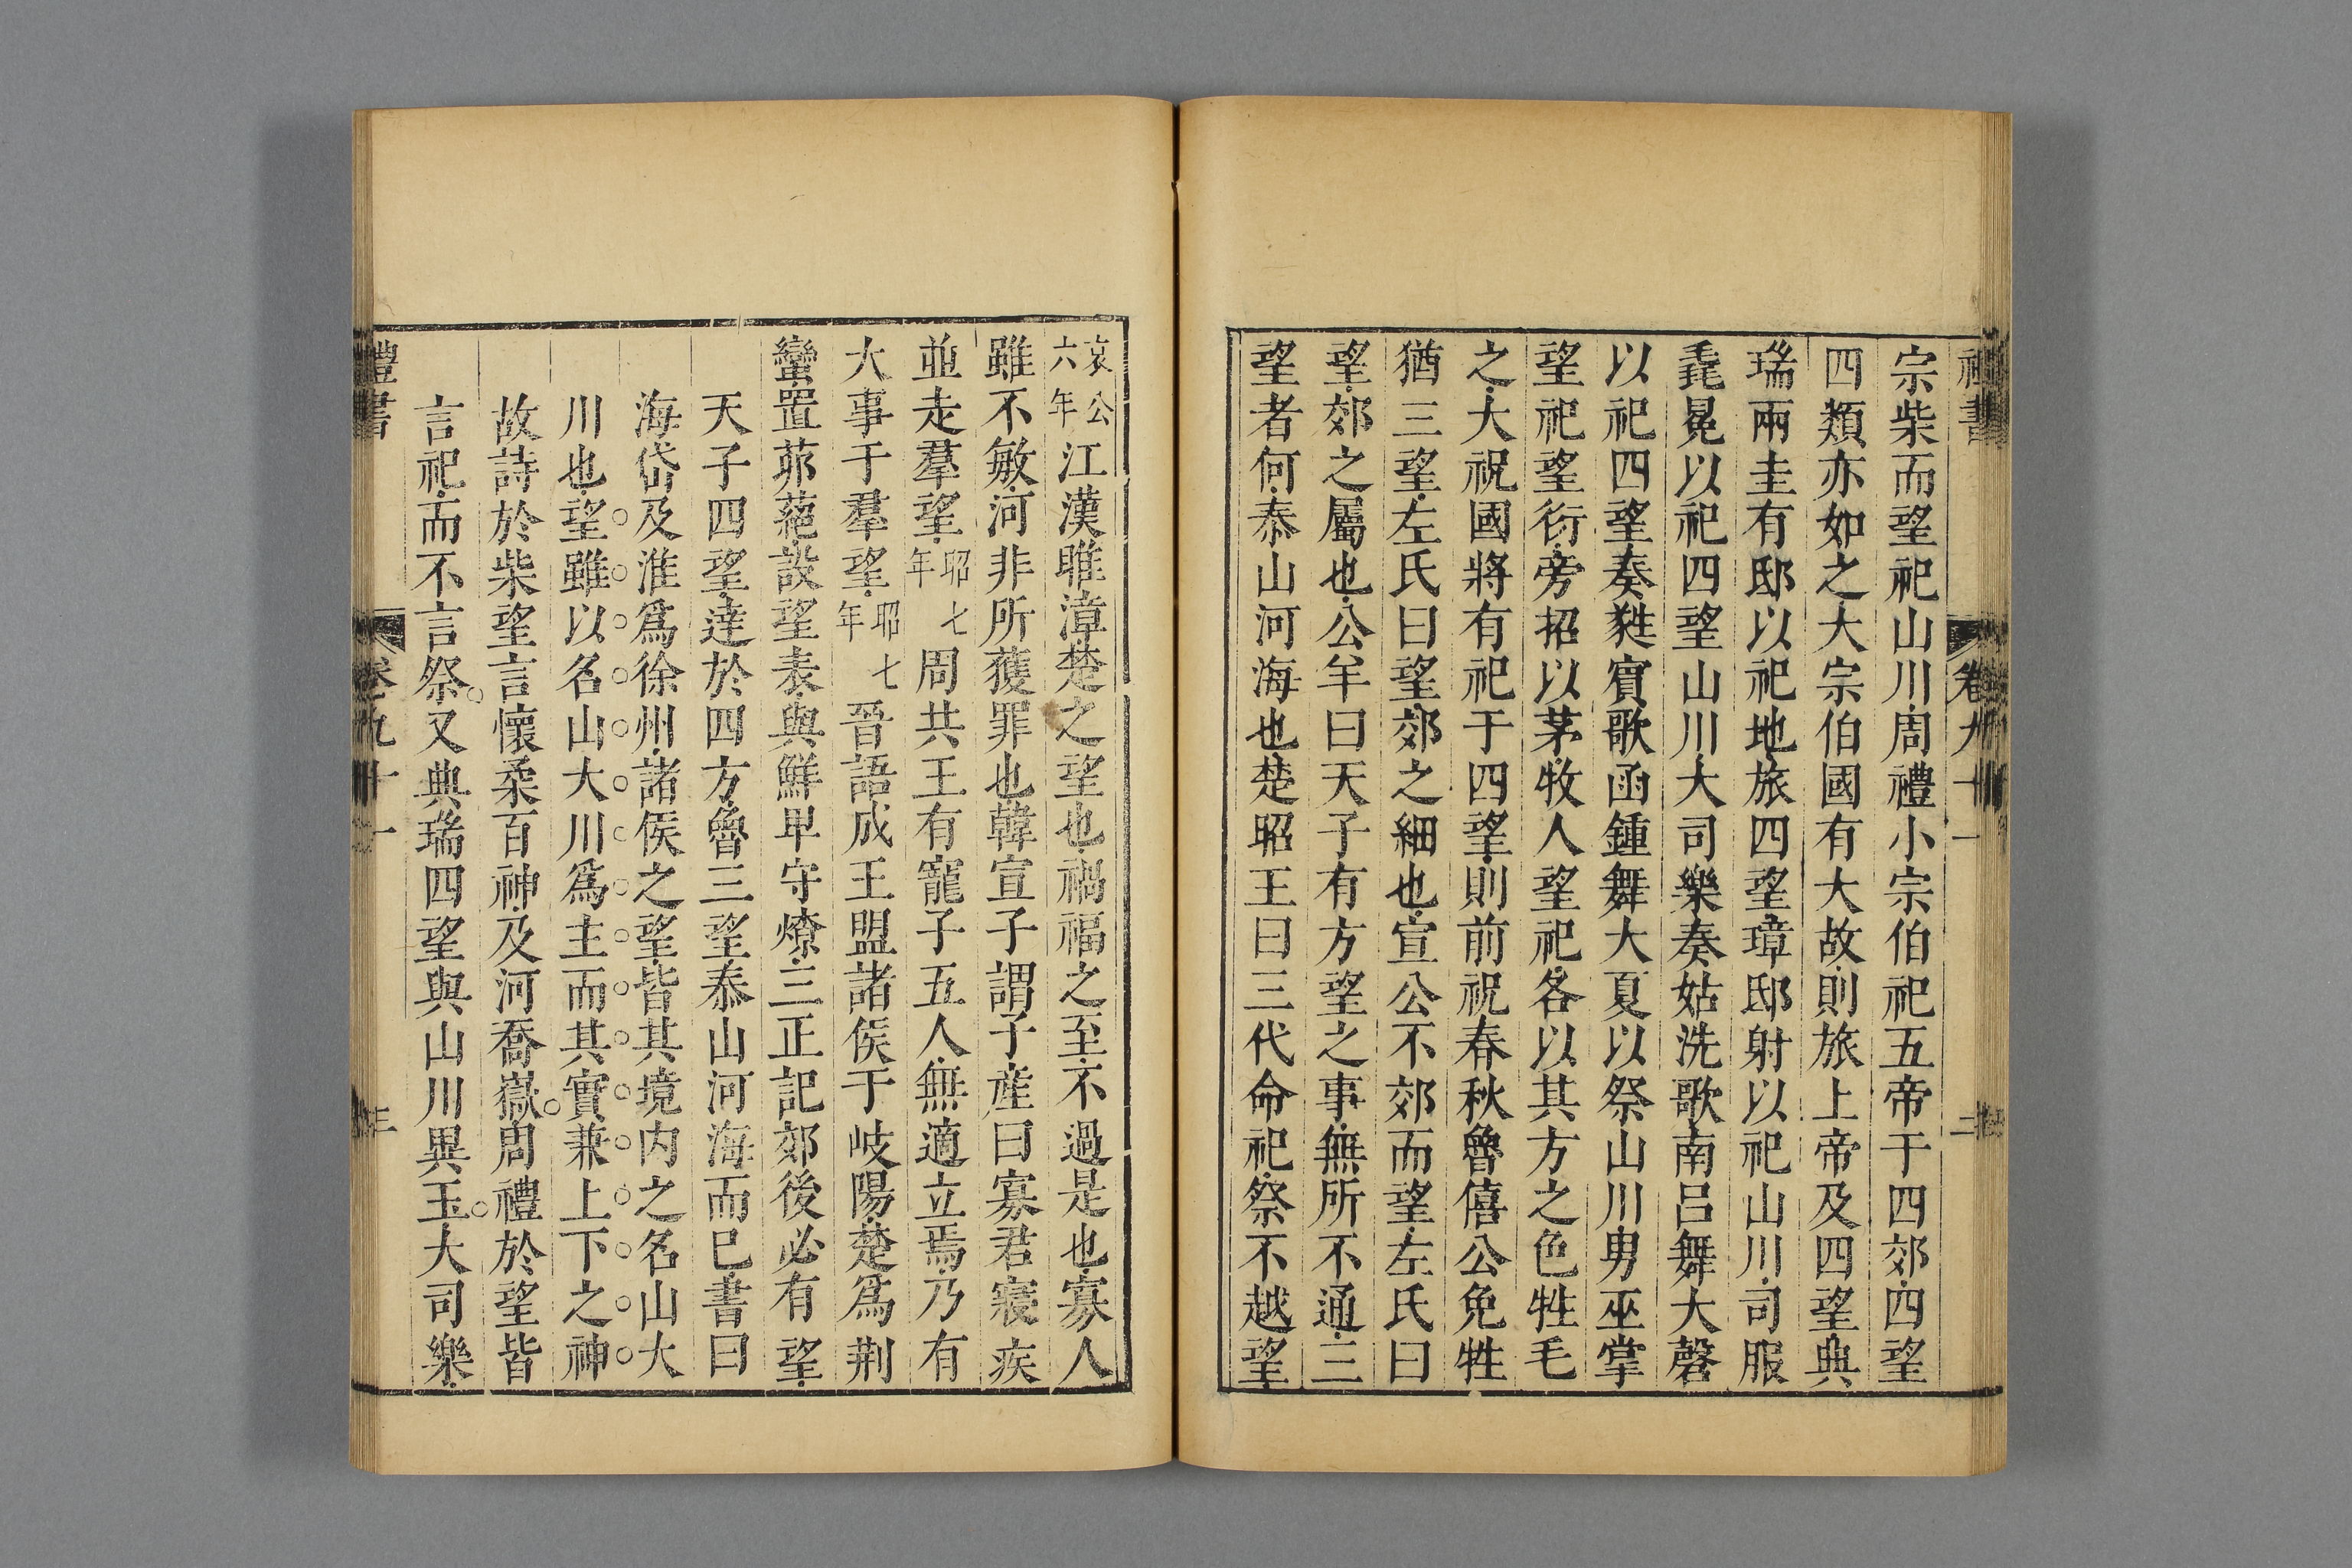 宗柴而望祀山川周禮小宗伯祀五帝于四郊四望
四類亦如之大宗伯國有大故則旅上帝及四望典
瑞兩圭有邸以祀地旅四望璋邸射以祀山川司服
毳冕以祀四望山川大司樂奏姑洗歌南呂舞大磬
以祀四望奏蕤賓歌函鍾舞大夏以祭山川男巫掌
望祀望衍旁招以茅牧人望祀各以其方之色牲毛
之大祝國將有祀于四望則前祝春秋魯僖公免牲
猶三望左氏曰望郊之細也宣公不郊而望左氏曰
望郊之屬也公羊曰天子有方望之事無所不通三
望者何泰山河海也楚昭王曰三代命祀祭不越望
哀公六年江漢雎漳楚之望也禍福之至不過是也寡人
雖不敏河非所獲罪也韓宣子謂子產曰寡君寢疾
並走羣望昭七年周共王有寵子五人無適立焉乃有
大事于羣望昭七年晉語成王盟諸侯于岐陽楚爲荆
蠻置茆蕝設望表與鮮卑守燎三正記郊後必有望
天子四望達於四方魯三望泰山河海而已書曰
海岱及淮爲徐州諸侯之望皆其境内之名山大
川也望雖以名山大川爲主而其實兼上下之神
故詩於柴望言懷柔百神及河喬嶽周禮於望皆
言祀而不言祭又典瑞四望與山川異玉大司樂
禮書 卷九十一